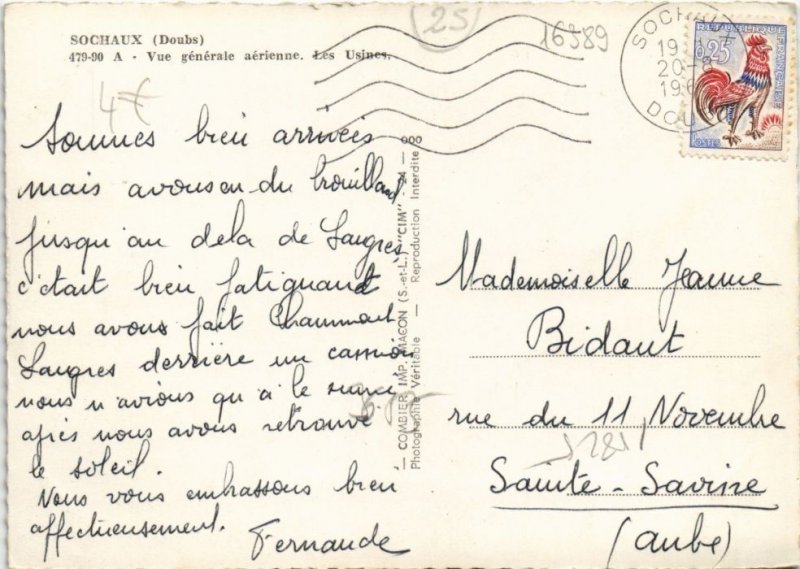 SOCHAUX (Doubs)
479-90 A - Vue générale aérienne. Les Usines.
4€
(25)
16589
SOCHAUX
19
20-8
196
DOUBS
REPUBLIQUE FRANÇAISE
0,25
POSTES
Sommes bien arrivées
mais avons eu du brouillard
jusqu'au dela de Langres
c'était bien fatiguant
nous avons fait Chaumont
Langres derrière un camion
nous n'avions qu'a le suivre
après nous avons retrouvé
le soleil.
Nous vous embrassons bien
affectueusement.
Fernande
— COMBIER IMP. MACON (S.-et-L.) "CIM" 24 — 000
Photographie Véritable — Reproduction Interdite
Mademoiselle Jeanne
Bidaut
rue du 11 Novembre
Sainte-Savine
(Aube)